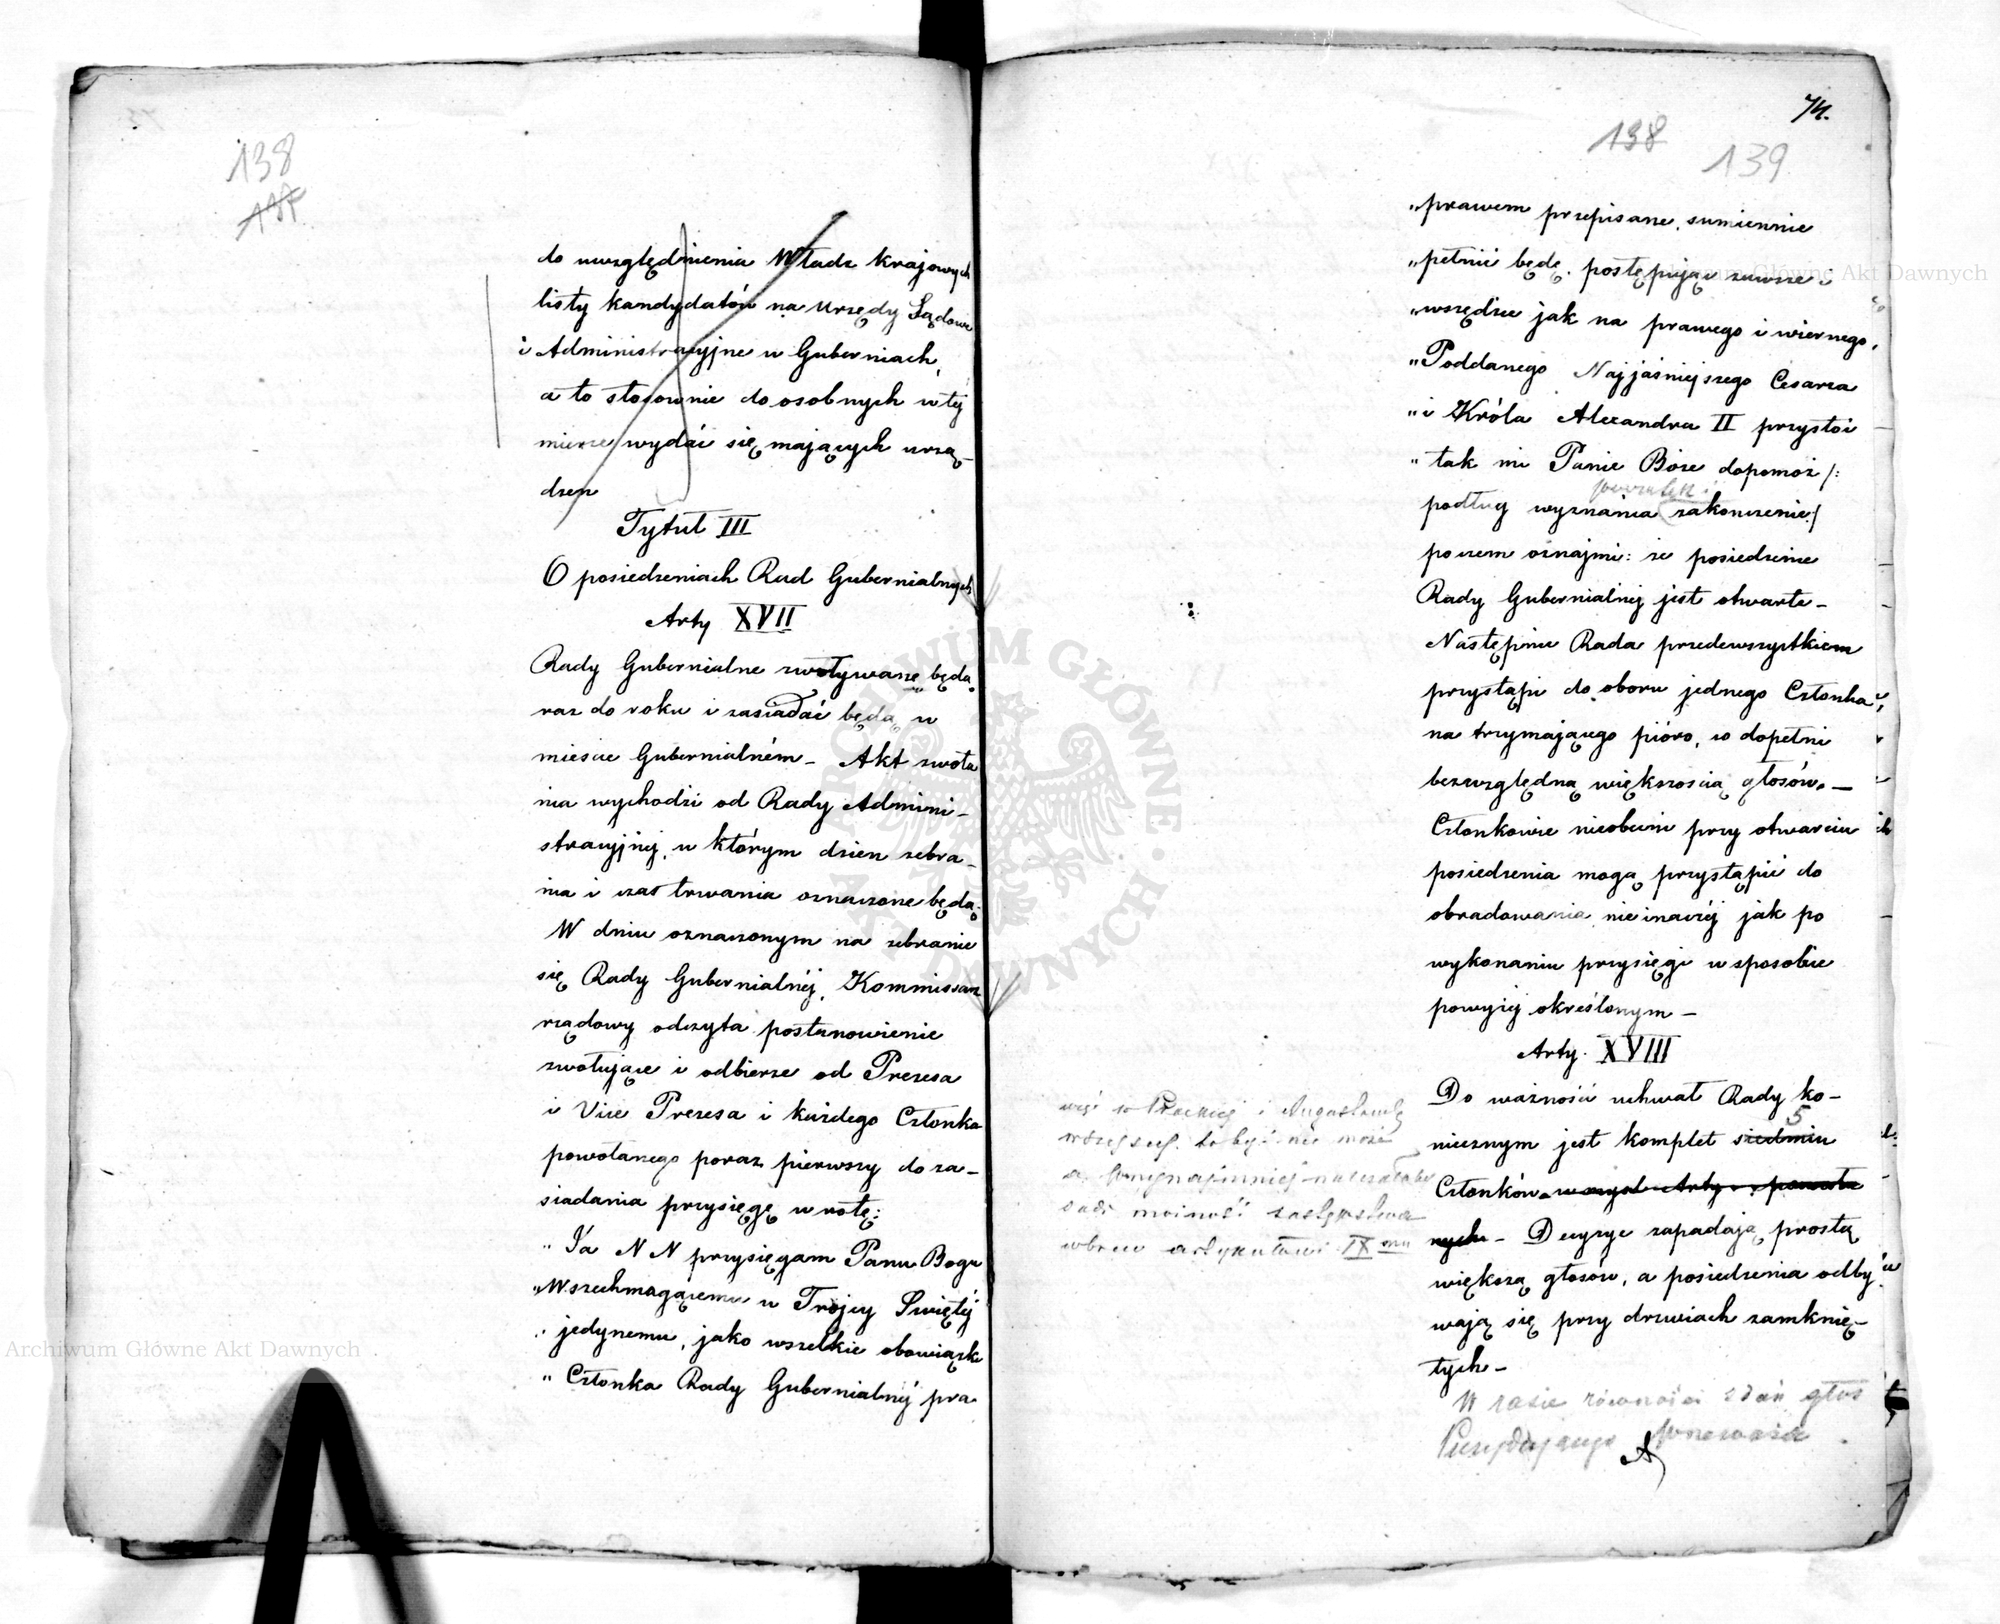 138
do uwzględnienia Władz krajowych
listy kandydatów na urzędy Sądowe
i Administracyjne w Guberniach,
a to stosownie do osobnych w tej
mierze wydać się mających urzą-
dzen
Tytuł III
O posiedzeniach Rad Gubernialnych
Arty XVII
Rady Gubernialne zwoływane będą
raz do roku i zasiadać będą w
miescie Gubernialném - Akt zwoła
nia wychodzi od Rady Admini-
stracyjnéj, w którym dzien zebra-
nia i czas trwania oznaczone będą.
W dniu oznaczonym na zebranie
się Rady Gubernialnéj, Kommissarz
rządowy odczyta postanowienie
zwołujące i odbierze od Prezesa
i Vice Prezesa i każdego Członka
powołanego poraz pierwszy do za-
siadania przysięgę w rotę:
"Ja N N przysięgam Panu Bogu
"Wszechmogącemu w Trójcy Swiętéj
"jedynemu, jako wszelkie obowiązki
"Członka Rady Gubernialnéj pra
74.
138
139
"prawem przepisane, sumiennie
"pełnić będę, postępując zawsze i
"wszędzie jak na prawego i wiernego
"Poddanego Najjaśniejszego Cesarza
"i Króla Alexandra II przystoi
"tak mi Panie Boże dopomóż /:
początek i
podług wyznania zakonczenie:/
poczem oznajmi: że posiedzenie
Rady Gubernialnéj jest otwarte -
Następnie Rada przedewszystkiem
przystąpi do oboru jednego Członka
na trzymającego pióro, co dopełni
bezwzględną większoscią głosów. —
Członkowie nieobecni przy otwarciu
posiedzenia mogą przystąpić do
obradowania nie inaczéj jak po
wykonaniu przysięgi w sposobie
powyżéj określonym -
Arty. XVIII
Do ważności uchwał Rady ko-
5
niecznym jest komplet siedmiu
Członków w mysl Arty powoła
nych - Decyzye zapadają prostą
większą głosów, a posiedzenia odby
wają się przy drzwiach zamknię-
tych -
W razie równości zdań głos
Prezydującego przeważa
więc w Płockiej i Augustowsk
a przynajmniej należałoby
dać możność zastępstwa
wbrew artykułowi IX mu
Archiwum Główne Akt Dawnych
Archiwum Główne Akt Dawnych
ARCHIWUM GŁÓWNE AKT DAWNYCH